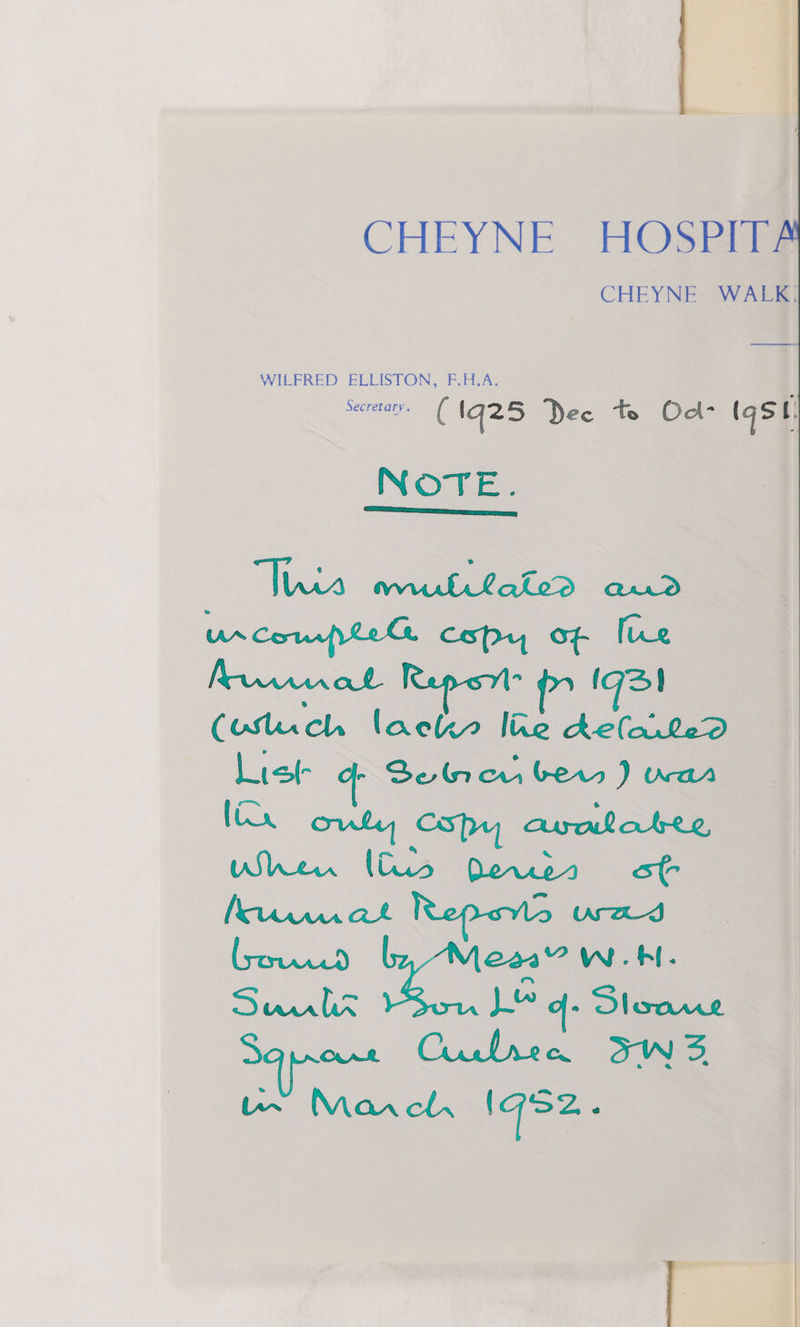 CHEYNE HOSPITA
CHEYNE WALK.
WILFRED ELLISTON, F.H.A.
Secretary. (1925 Dec to Oct 1951
NOTE.
This mutilated and
incomplete copy of the
Annual Report for 1931
(which lacks the detailed
List of Subscribers) was
the only copy available
when this Series of
Annual Reports was
bound by Messrs W. H.
Smith & Son Ltd of Sloane
Square Chelsea SW 3
in March 1952.